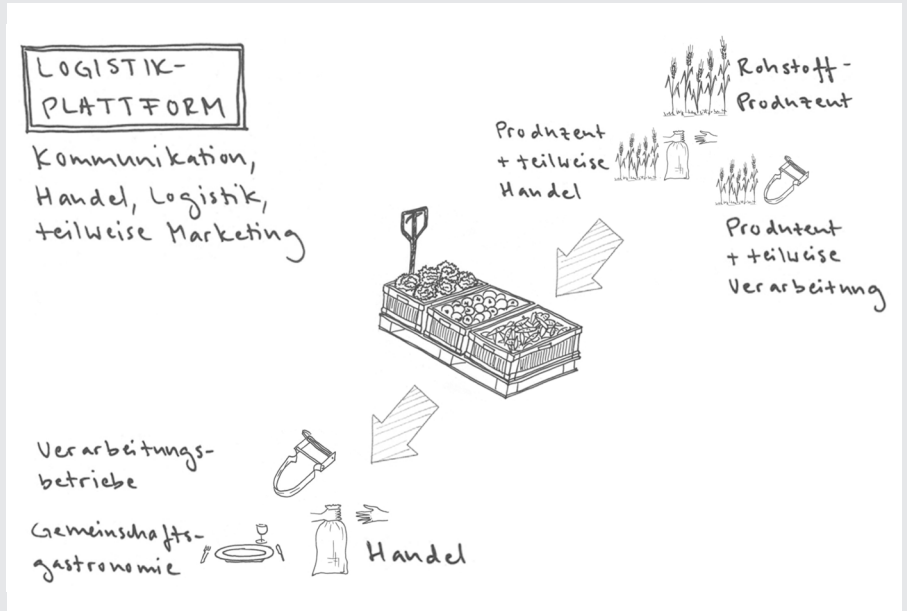 LOGISTIK-
PLATTFORM
Kommunikation,
Handel, Logistik,
teilweise Marketing
Rohstoff-
Produzent
Produzent
+ teilweise
Handel
Produzent
+ teilweise
Verarbeitung
Verarbeitungs-
betriebe
Gemeinschafts-
gastronomie
Handel